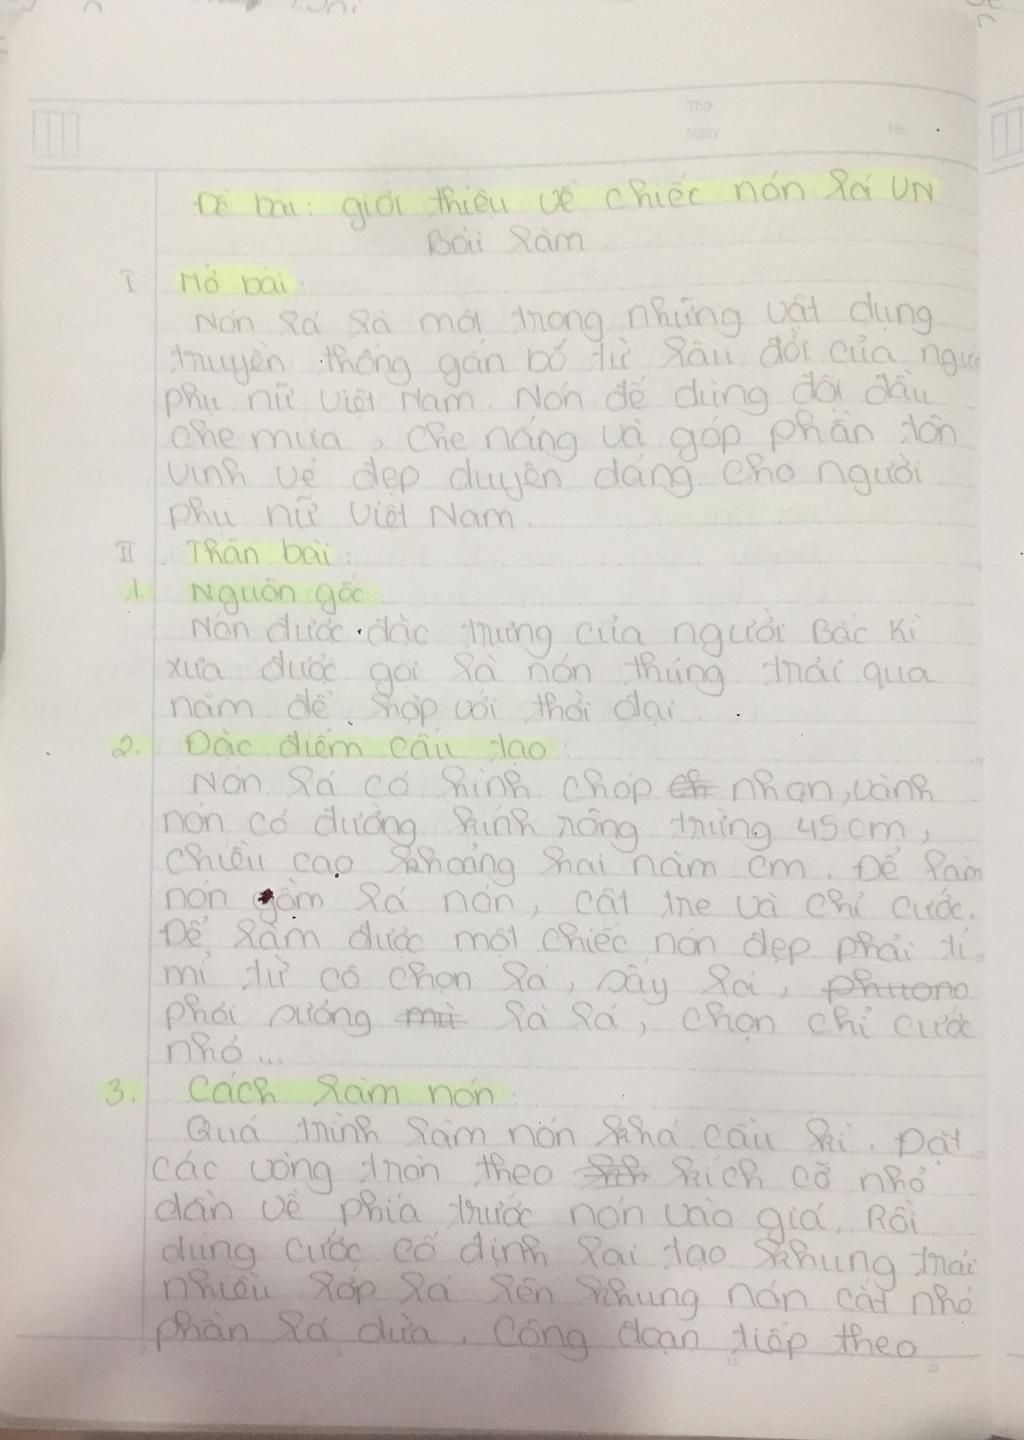 Thứ
Ngày
No.
Đề bài: giới thiệu về chiếc nón lá VN
Bài làm
I Mở bài:
Nón lá là một trong những vật dụng
truyền thống gắn bó từ lâu đời của người
phụ nữ Việt Nam. Nón để dùng đội đầu
che mưa, che nắng và góp phần tôn
vinh vẻ đẹp duyên dáng cho người
phụ nữ Việt Nam.
II Thân bài:
1. Nguồn gốc:
Nón được đặc trưng của người Bắc Kì
xưa được gọi là nón thúng trải qua
năm để hợp với thời đại
2. Đặc điểm cấu tạo:
Nón lá có hình chóp nhọn, vành
nón có đường kính rộng trừng 45cm,
chiều cao khoảng hai năm cm. Để làm
nón gồm lá nón, cật tre và chỉ cước.
Để làm được một chiếc nón đẹp phải tỉ
mỉ từ cô chọn lá, sấy lá,
phơi sương là lá, chọn chỉ cước
nhỏ...
3. Cách làm nón:
Quá trình làm nón khá cầu kì. Đặt
các vòng tròn theo kích cỡ nhỏ
dần về phía trước nón vào giá. Rồi
dùng cước cố định lại tạo khung trải
nhiều lớp lá lên khung nón cắt nhỏ
phần lá dưa. Công đoạn tiếp theo